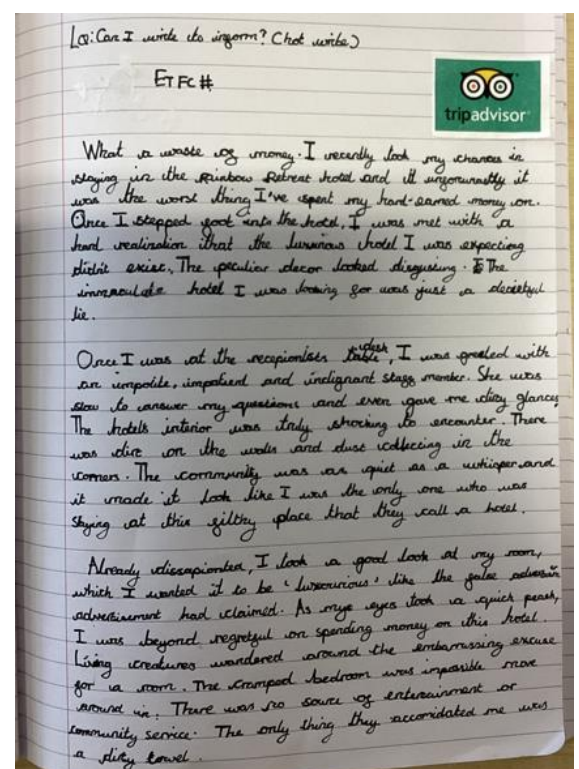 LQ: Can I write to inform? (hot write)
ETFC#
tripadvisor
What a waste of money. I recently took my chances in
staying in the Rainbow Retreat hotel and it unforunactly it
was the worst thing I've spent my hard-earned money on.
Once I stepped foot into the hotel, I was met with a
hard realization that the luxurious hotel I was expecting
didn't exist. The peculiar decor looked disgusting. The
immaculate hotel I was looking for was just a deceitful
lie.
Once I was at the recepionists desk, I was greeted with
an impolite, impatient and indignant staff member. She was
slow to answer my questions and even gave me dirty glances
The hotels interior was truly shocking to encounter. There
was dirt on the walls and dust collecting in the
corners. The community was as quiet as a whisper and
it made it look like I was the only one who was
staying at this filthy place that they call a hotel.
Already dissapionted, I took a good look at my room,
which I wanted it to be 'luxecurious' like the false
advertisement had claimed. As mye eyes took a quick peash,
I was beyond regretful on spending money on this hotel.
Living creatures wandered around the embarrassing excuse
for a room. The cramped bedroom was impossible move
around in. There was no source of enterainment or
community service. The only thing they accomidated me was
a dirty towel.